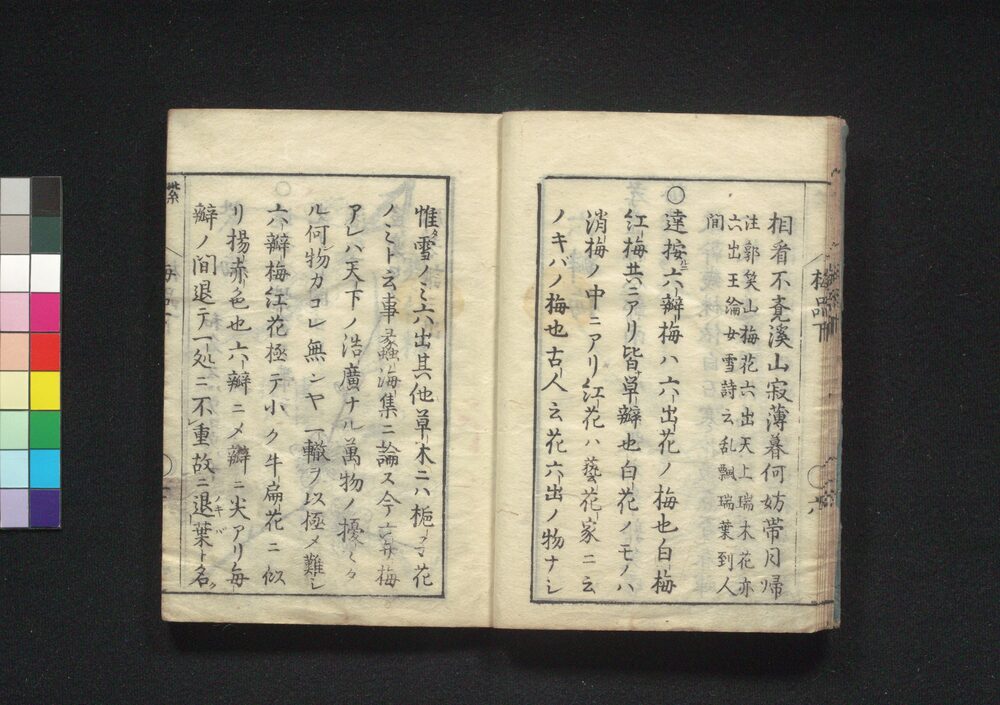 相看不覚溪山寂薄暮何妨帯月帰
注郭笑山梅花六出天上瑞木花亦
六出王淪女雪詩云乱飄瑞葉到人
間
〇達按六瓣梅ハ六出花ノ梅也白梅
紅梅共ニアリ皆草瓣也白花ノモノハ
消梅ノ中ニアリ紅花ハ藝花家ニ云
ノキバノ梅也古人云花六出ノ物ナシ
惟雪ノミ六出其他草木ニハ梔子花
ノミト云事蠡海集ニ論ス今六出梅
アレハ天下ノ浩廣ナル萬物ノ擾々タ
ル何物カコレ無ンヤ一轍ヲ以極メ難シ
六瓣梅紅花極テ小ク牛扁花ニ似
リ揚赤色也六瓣ニメ瓣ニ尖アリ毎
瓣ノ間退テ一処ニ不重故ニ退葉ト名ク
ノキバ
梅品下
六
紫